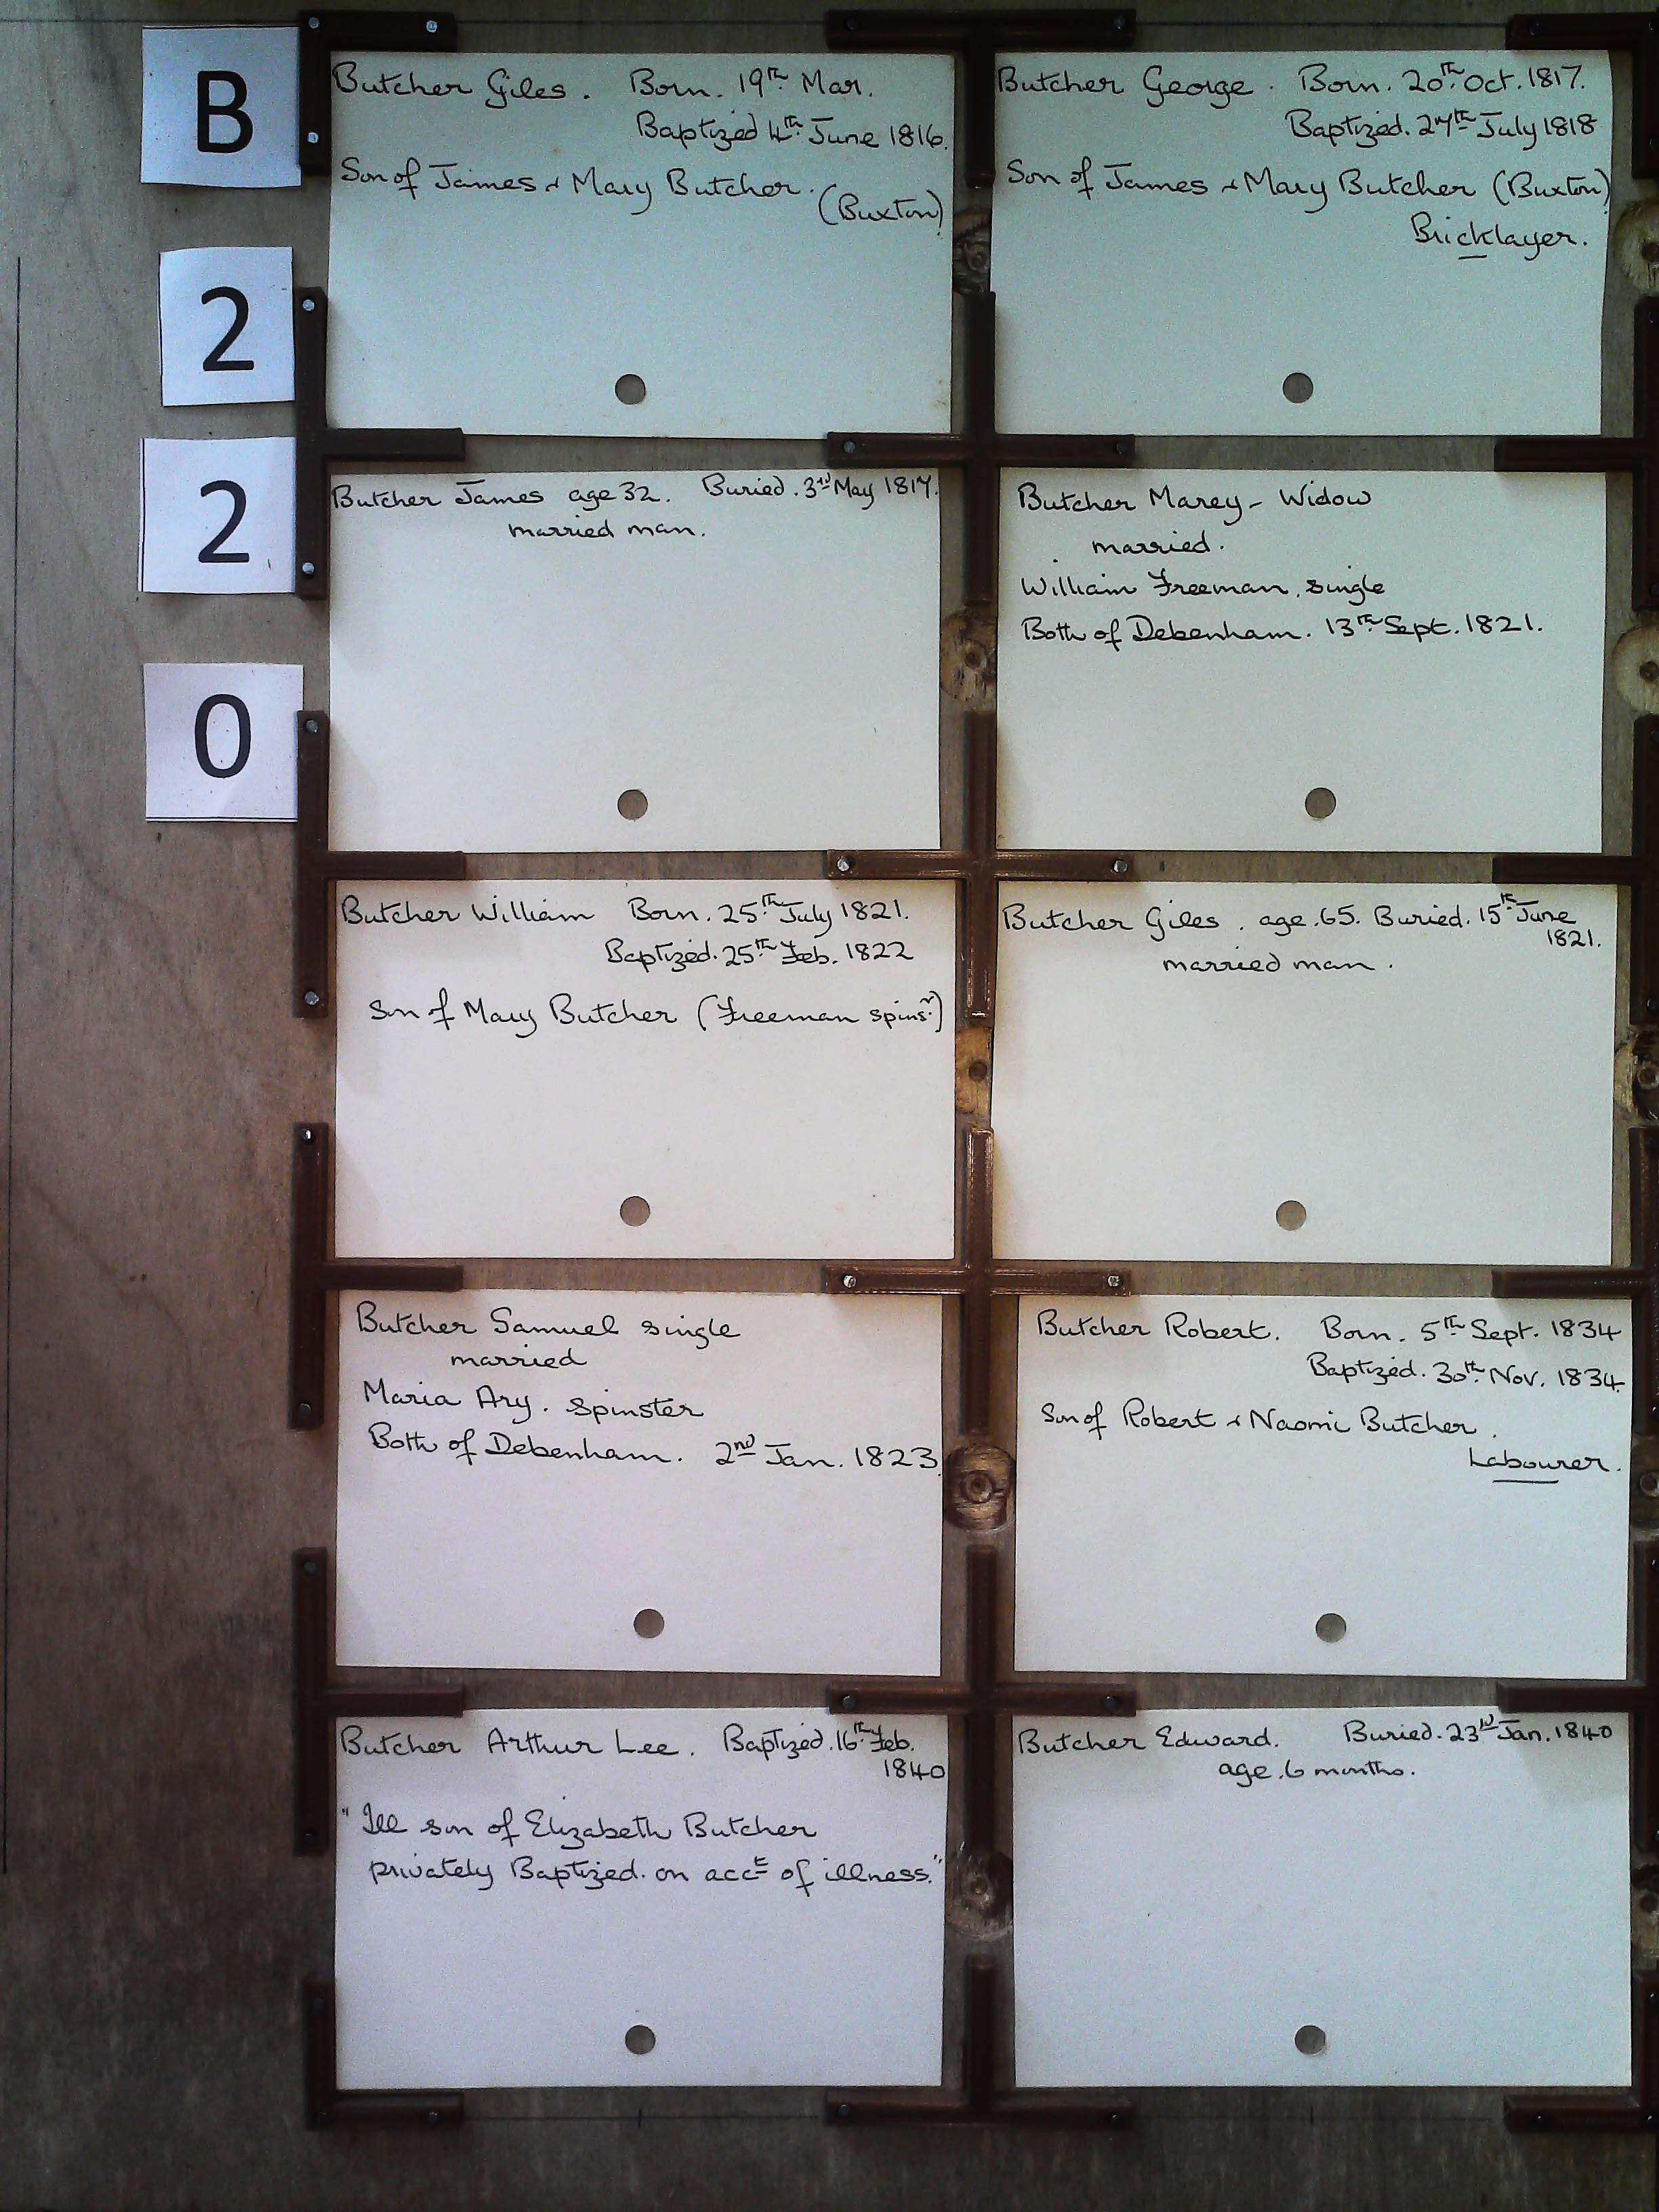 B
2
2
0
Butcher Giles. Born. 19th Mar.
Baptized 4th June 1816.
Son of James & Mary Butcher.
(Buxton)
Butcher George. Born. 20th Oct. 1817.
Baptized. 27th July 1818
Son of James & Mary Butcher (Buxton)
Bricklayer.
Butcher James age 32. Buried. 3rd May 1817.
married man.
Butcher Marey - Widow
married.
William Freeman. single
Both of Debenham. 13th Sept. 1821.
Butcher William Born. 25th July 1821.
Baptized. 25th Feb. 1822
Son of Mary Butcher (Freeman spinsr.)
Butcher Giles. age. 65. Buried. 15th June
1821.
married man.
Butcher Samuel single
married
Maria Ary. spinster
Both of Debenham. 2nd Jan. 1823.
Butcher Robert. Born. 5th Sept. 1834
Baptized. 30th Nov. 1834.
Son of Robert & Naomi Butcher.
Labourer.
Butcher Arthur Lee. Baptized. 16th Feb.
1840
"Ill son of Elizabeth Butcher
privately Baptized. on acct of illness."
Butcher Edward. Buried. 23rd Jan. 1840
age. 6 months.